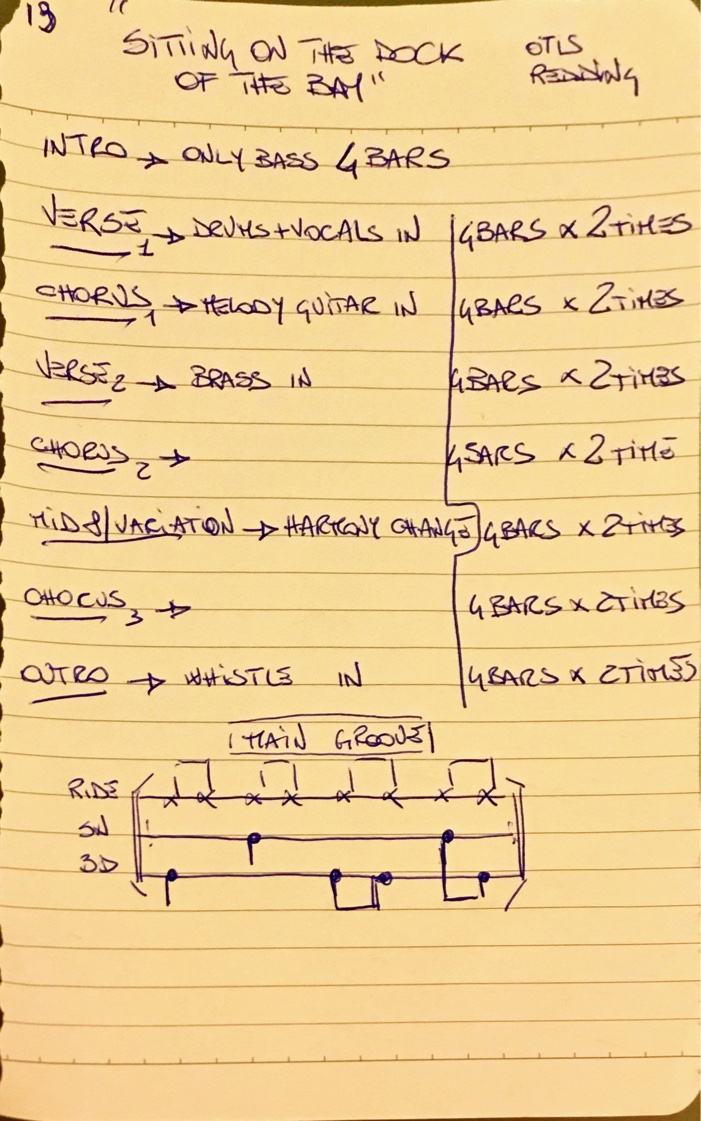 13
"SITTING ON THE DOCK OTIS
OF THE BAY" REDDING
INTRO → ONLY BASS 4 BARS
VERSE 1 → DRUMS + VOCALS IN 4 BARS x 2 TIMES
CHORUS 1 → MELODY GUITAR IN 4 BARS x 2 TIMES
VERSE 2 → BRASS IN 4 BARS x 2 TIMES
CHORUS 2 → 4 BARS x 2 TIME
MID 8/VARIATION → HARMONY CHANGE 4 BARS x 2 TIMES
CHOCUS 3 → 4 BARS x 2 TIMES
OUTRO → WHISTLE IN 4 BARS x 2 TIMES
MAIN GROOVE
RIDE
SN
BD